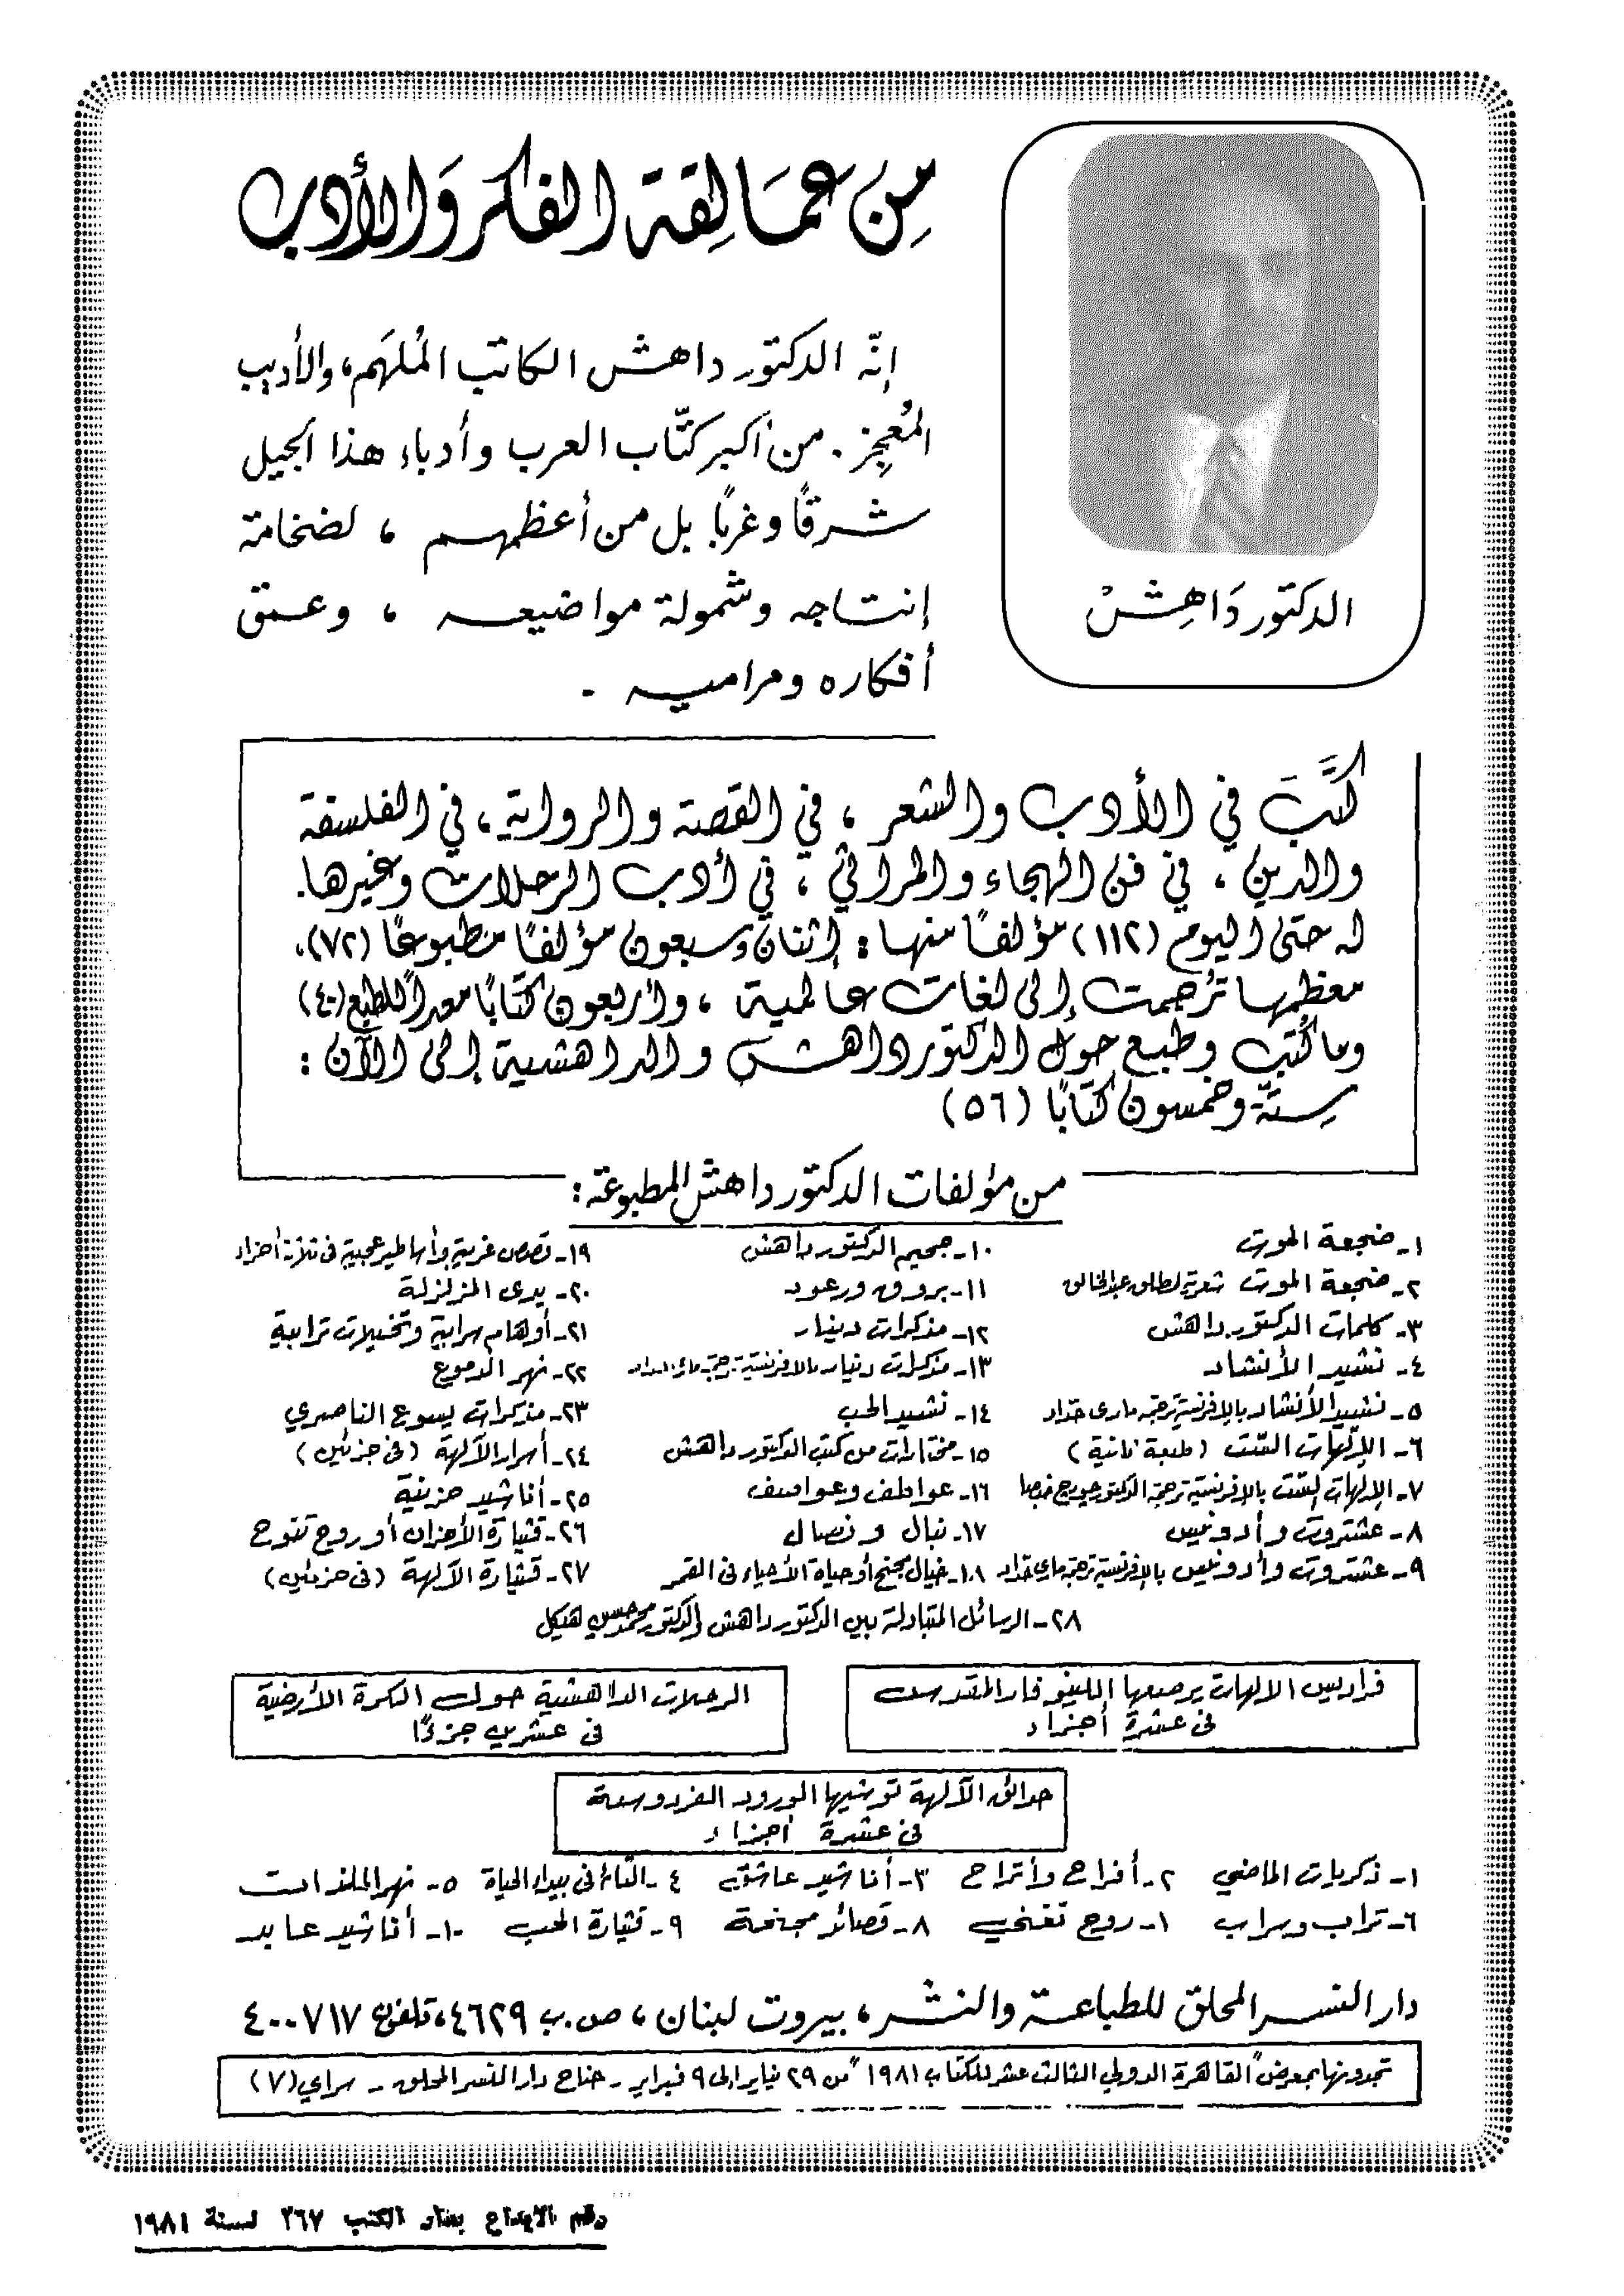 من عمَالِقة الفكر وَالأدب
الدكتور دَاهِشْ
إنّه الدكتور داهش الكاتب المُلهَم، والأديب
المُعجِز. من أكبر كتّاب العرب وأدباء هذا الجيل
شرقًا وغربًا بل من أعظمهم ، لضخامة
إنتاجه وشمولة مواضيعه ، وعمق
أفكاره ومراميه .
كتَبَ في الأدب والشعر ، في القصة والرواية ، في الفلسفة
والدين ، في فن الهجاء والمراثي ، في أدب الرحلات وغيرها.
له حتى اليوم (١١٢) مؤلفًا منها : إثنان وسبعون مؤلفًا مطبوعًا (٧٢)،
معظمها تُرجمت إلى لغات عالمية ، وأربعون كتابًا معداً للطبع (٤٠)
وما كُتب وطبع حول الدكتور داهش والداهشية إلى الآن :
ستّة وخمسون كتابًا (٥٦)
من مؤلفات الدكتور داهش المطبوعة :
١- ضجعة الموت
٢- ضجعة الموت شعرية لمطلق عبد الخالق
٣- كلمات الدكتور داهش
٤- نشيد الأنشاد
٥- نشيد الأنشاد بالإفرنسية ترجمة ماري حداد
٦- الإلهات الست (طبعة ثانية)
٧- الإلهات الست بالإفرنسية ترجمة الدكتور جورج خبصا
٨- عشتروت وأدونيس
٩- عشتروت وأدونيس بالإفرنسية ترجمة ماري حداد
١٠- جحيم الدكتور داهش
١١- بروق ورعود
١٢- مذكرات دينار
١٣- مذكرات دينار بالإفرنسية ترجمة ماري حداد
١٤- نشيد الحب
١٥- مختارات من كتب الدكتور داهش
١٦- عواطف وعواصف
١٧- نبال ونصال
١٨- خيال مجنح أو حياة الأحياء في القمر
١٩- قصص غريبة وأساطير عجيبة في ثلاثة أجزاء
٢٠- يدي المزلزلة
٢١- أوهام سرابية وتخيلات ترابية
٢٢- نهر الدموع
٢٣- مذكرات يسوع الناصري
٢٤- أسرار الآلهة (في جزئين)
٢٥- أناشيد حزينة
٢٦- قيثارة الأحزان أو روح تنوح
٢٧- قيثارة الآلهة (في جزئين)
٢٨- الرسائل المتبادلة بين الدكتور داهش والدكتور محمد حسين هيكل
فراديس الالهات يرصعها اللينوفار المقدس
في عشرة أجزاء
الرحلات الداهشية حول الكرة الأرضية
في عشرين جزءًا
حدائق الآلهة توشيها الورود الفردوسية
في عشرة أجزاء
١- ذكريات الماضي ٢- أفراح وأتراح ٣- أناشيد عاشق ٤- التائه في بيداء الحياة ٥- نهر الملذات
٦- تراب وسراب ١- روح تغني ٨- قصائد مجنحة ٩- قيثارة الحب ١٠- أناشيد عابد
دار النسر المحلق للطباعة والنشر ، بيروت لبنان ، ص.ب ٤٦٢٩، تلفون ٤٠٠٧١٧
تجدونها بمعرض "القاهرة الدولي الثالث عشر للكتاب ١٩٨١" من ٢٩ يناير الى ٩ فبراير - جناح دار النسر المحلق - سراي (٧)
رقم الايداع بدار الكتب ٣٦٧ لسنة ١٩٨١